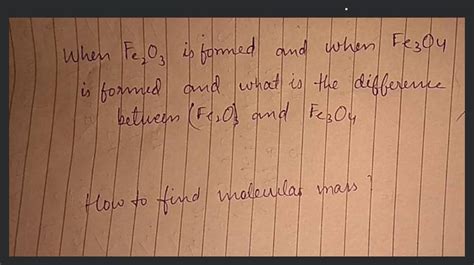 When Fe₂O₃ is formed and when Fe₃O₄
is formed and what is the difference
between (Fe₂O₃ and Fe₃O₄
How to find molecular mass?